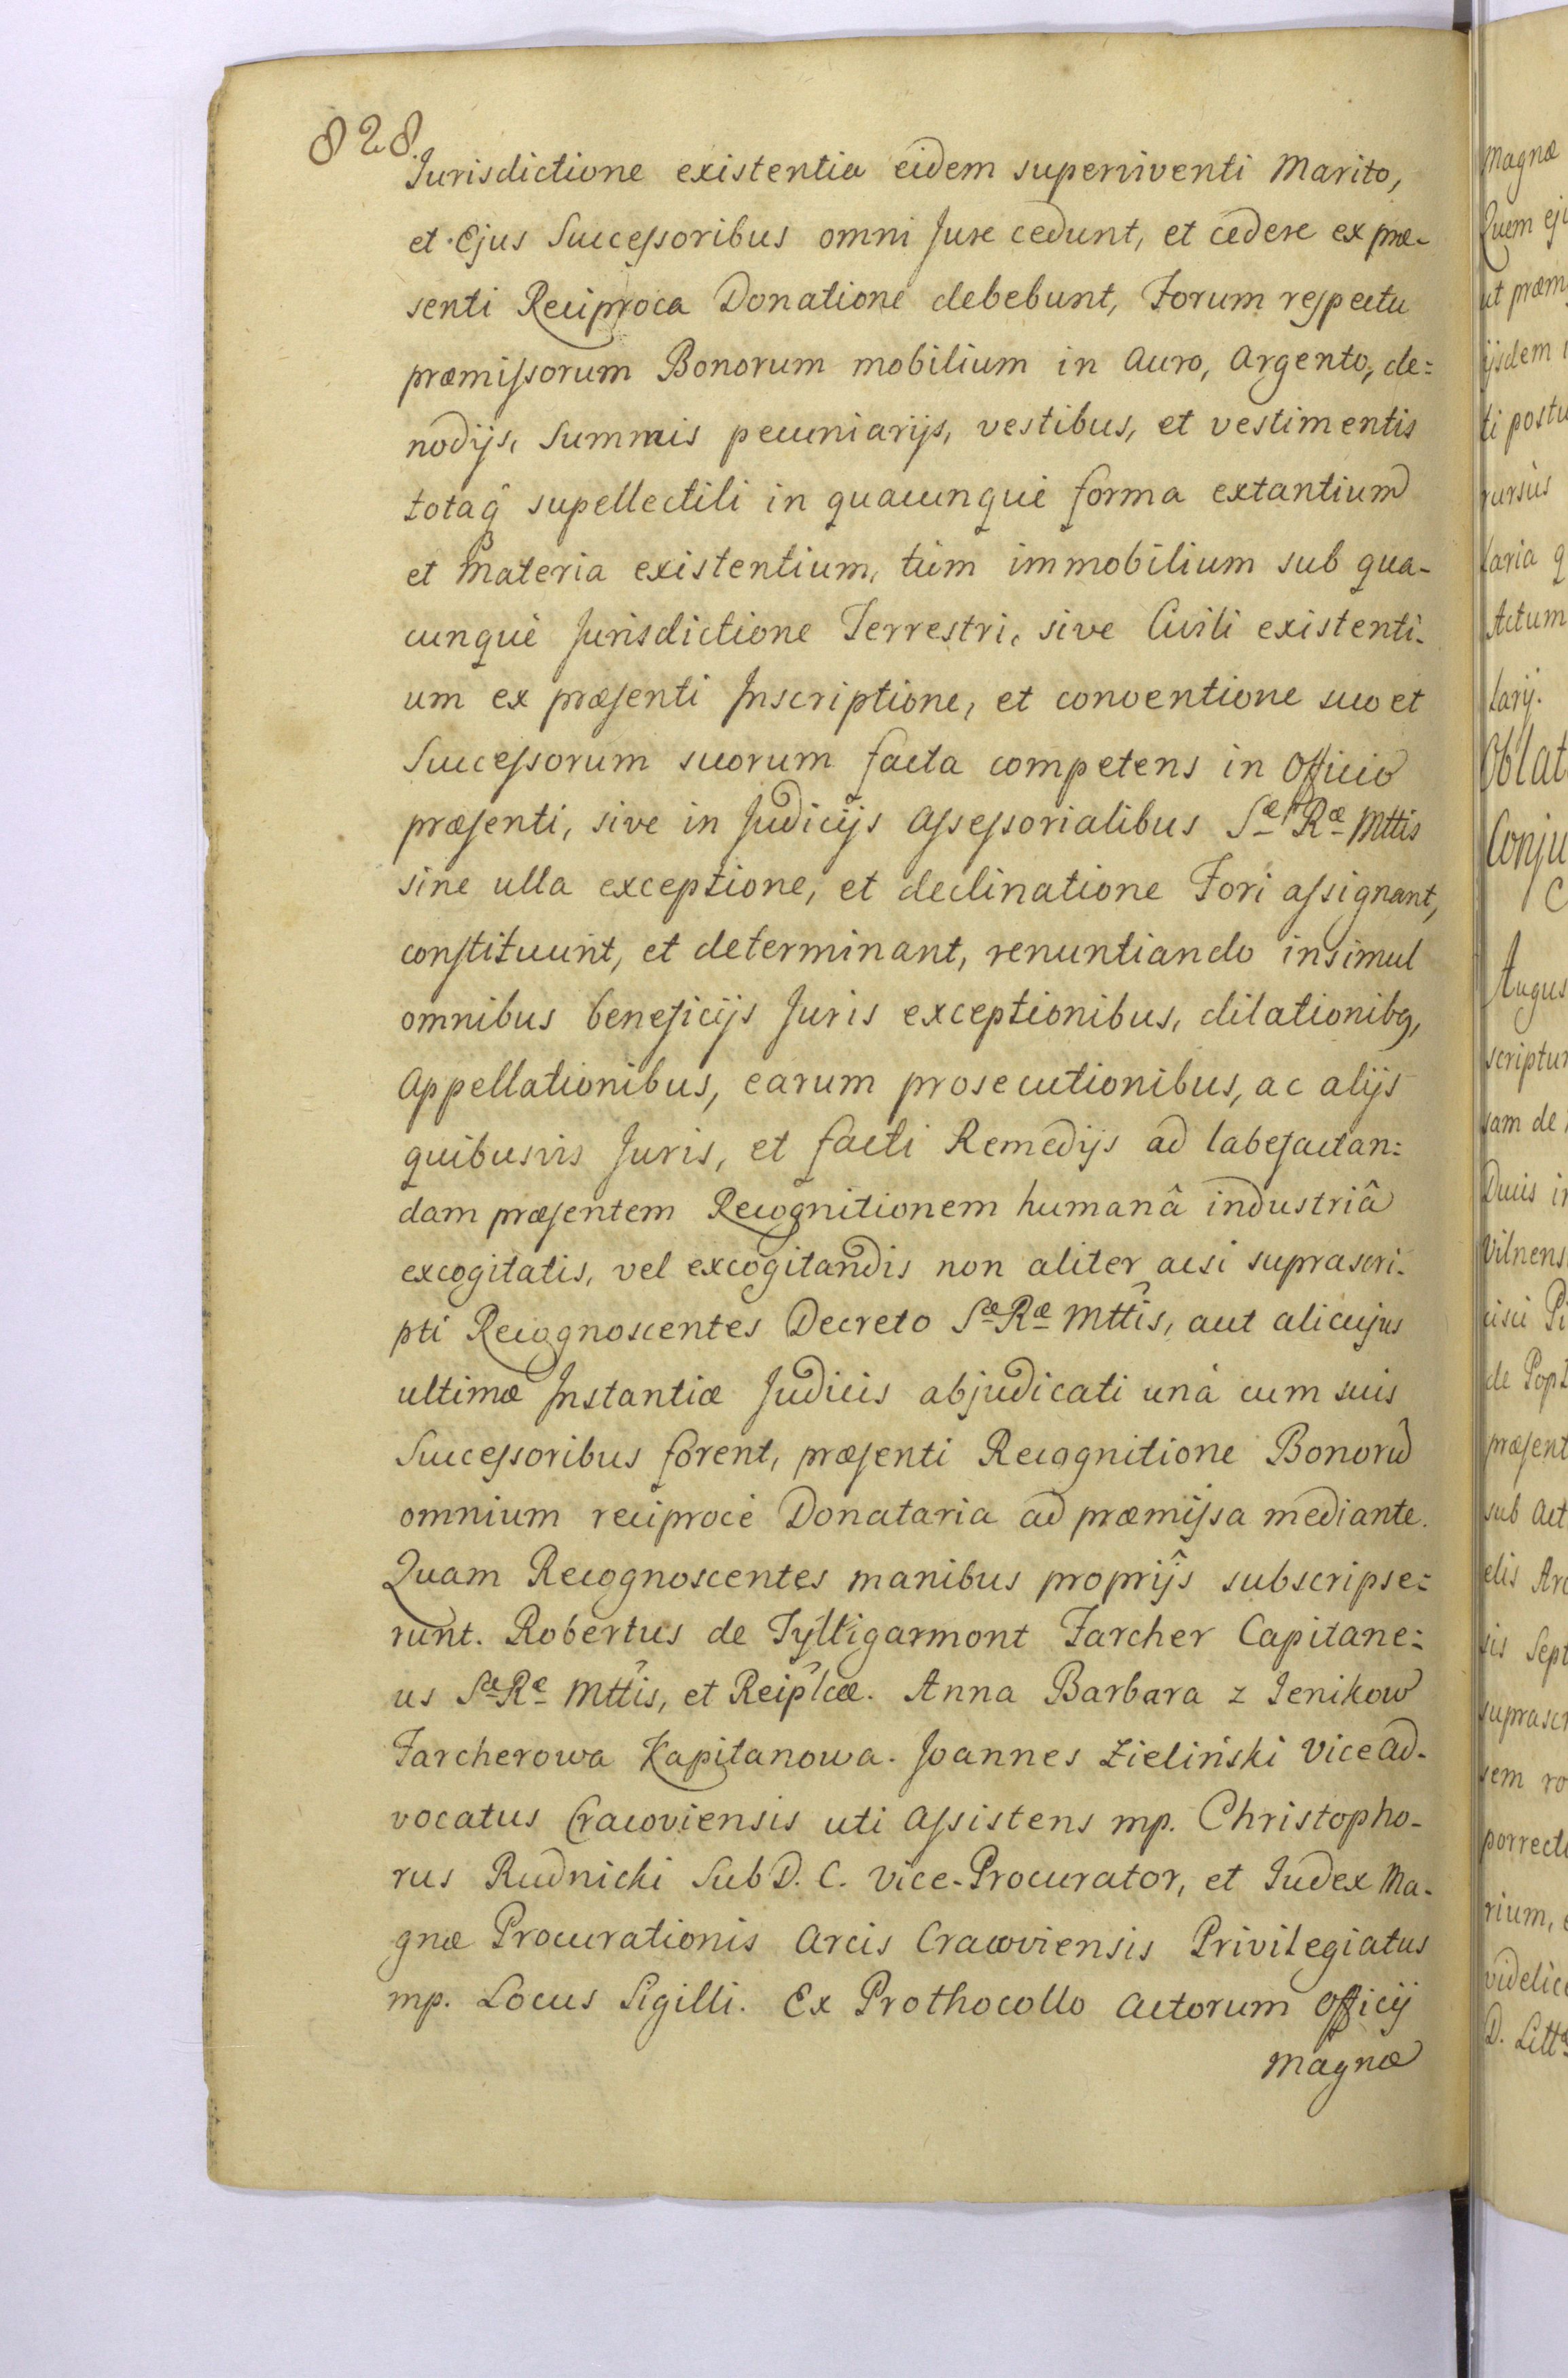 828.
Jurisdictione existentia eidem superviventi Marito,
et Ejus Successoribus omni Jure cedunt, et cedere ex præ-
senti Reciproca Donatione debebunt, Forum respectu
præmissorum Bonorum mobilium in Auro, Argento, cle=
nodijs, Summis pecuniarijs, vestibus, et vestimentis
totaq̂ supellectili in quacunque forma extantium
et Materia existentium, tùm immobilium sub qua-
cunquè Jurisdictione Terrestri, sive Civili existenti-
um ex præsenti Inscriptione, et conventione suo et
Successorum suorum facta competens in Officio
præsenti, sive in Judicijs Assessorialibus Sæ Ræ Mttis
sine ulla exceptione, et declinatione Fori assignant,
constituunt, et determinant, renuntiando insimul
omnibus beneficijs Juris exceptionibus, dilationibq,
Appellationibus, earum prosecutionibus, ac alijs
quibusvis Juris, et facti Remedijs ad labefactan=
dam præsentem Recognitionem humanâ industriâ
excogitatis, vel excogitandis non aliter acsi suprascri-
pti Recognoscentes Decreto Sæ Ræ Mttis, aut alicujus
ultimæ Instantiæ Judicis abjudicati unà cum suis
Successoribus forent, præsenti Recognitione Bonorũ
omnium reciprocè Donataria ad præmissa mediante.
Quam Recognoscentes manibus proprijs subscripse=
runt. Robertus de Tylligarmont Farcher Capitane=
us Sæ Ræ Mttis, et Reiplcæ. Anna Barbara z Jenikow
Farcherowa Kapitanowa. Joannes Zieliński Vice Ad-
vocatus Cracoviensis uti Assistens mp. Christopho-
rus Rudnicki Sub D. C. Vice-Procurator, et Judex Ma-
gnæ Procurationis Arcis Cracoviensis Privilegiatus
mp. Locus Sigilli. Ex Prothocollo Actorum Officij
Magnæ